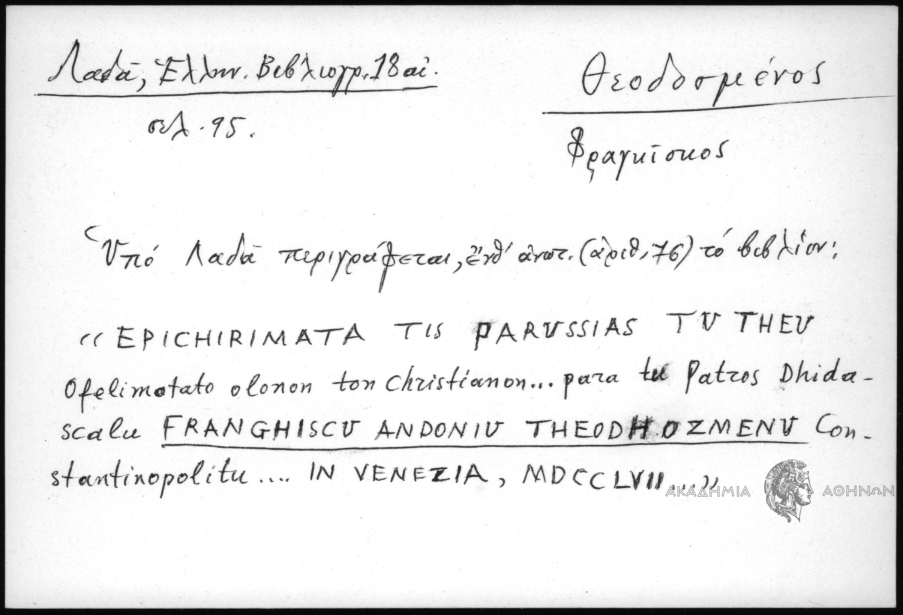 Λαδᾶ, Ἑλλην. Βιβλιογρ. 18 αἰ.
σελ. 95.
Θεοδοσμένος
Φραγκῖσκος
Ὑπό Λαδᾶ περιγράφεται, ἔνθ' ἀνωτ. (ἀριθ. 76) τό βιβλίον:
« EPICHIRIMATA TIS PARUSSIAS TU THEU
Ofelimotato olonon ton christianon... para tu Patros Dhida-
scalu FRANGHISCU ANDONIU THEODHOZMENU Con-
stantinopolitu .... IN VENEZIA, MDCCLVII ... »
ΑΚΑΔΗΜΙΑ ΑΘΗΝΩΝ